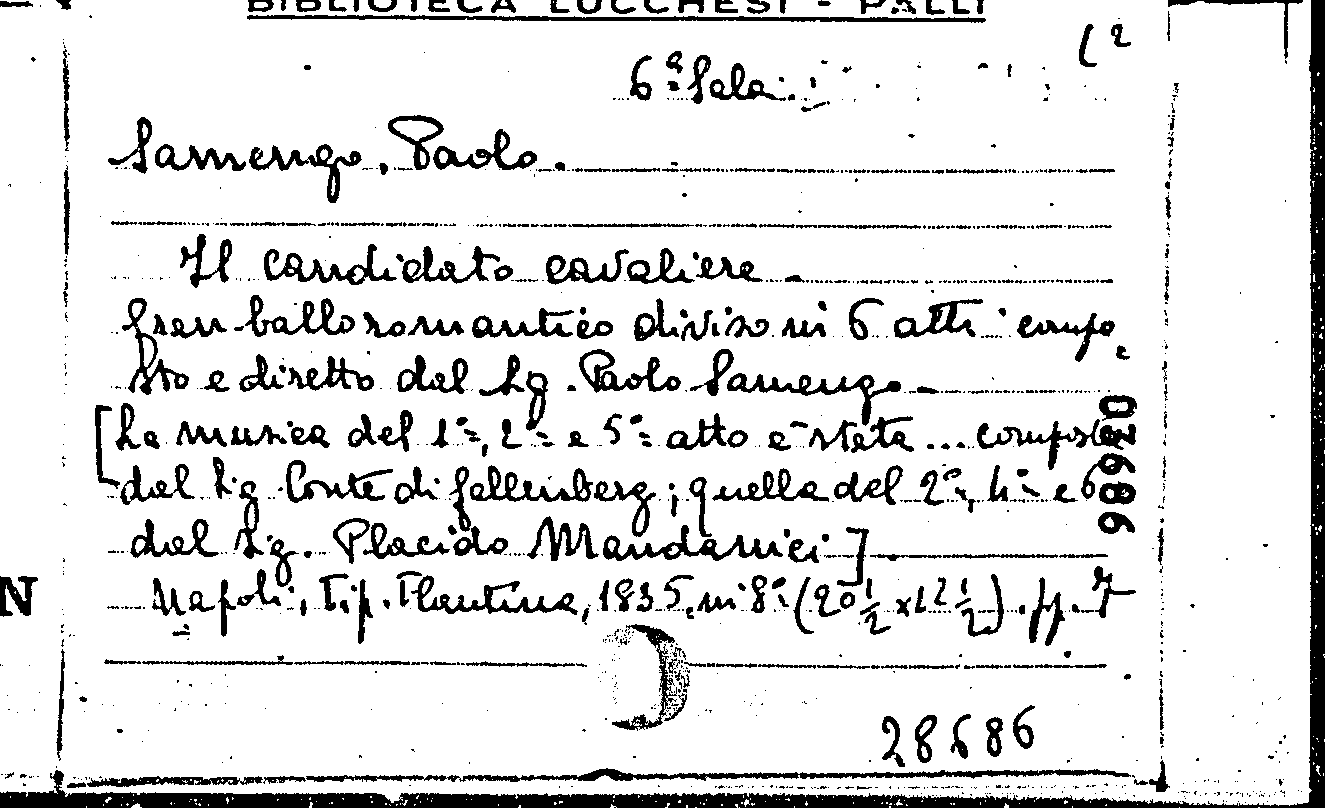 BIBLIOTECA LUCCHESI - PALLI
(2
6ª Sala
Samengo, Paolo.
Il candidato cavaliere -
Gran ballo romantico diviso in 6 atti compo
sto e diretto dal Sig. Paolo Samengo -
[La musica del 1º, 2º e 5º atto è stata ... composta
dal Sig. Conte di Gallenberg; quella del 2º, 4º e 6
dal Sig. Placido Mandanici].
Napoli, Tip. Flautina, 1835, in 8º (20½ x 12½). pp. 7
28686
N